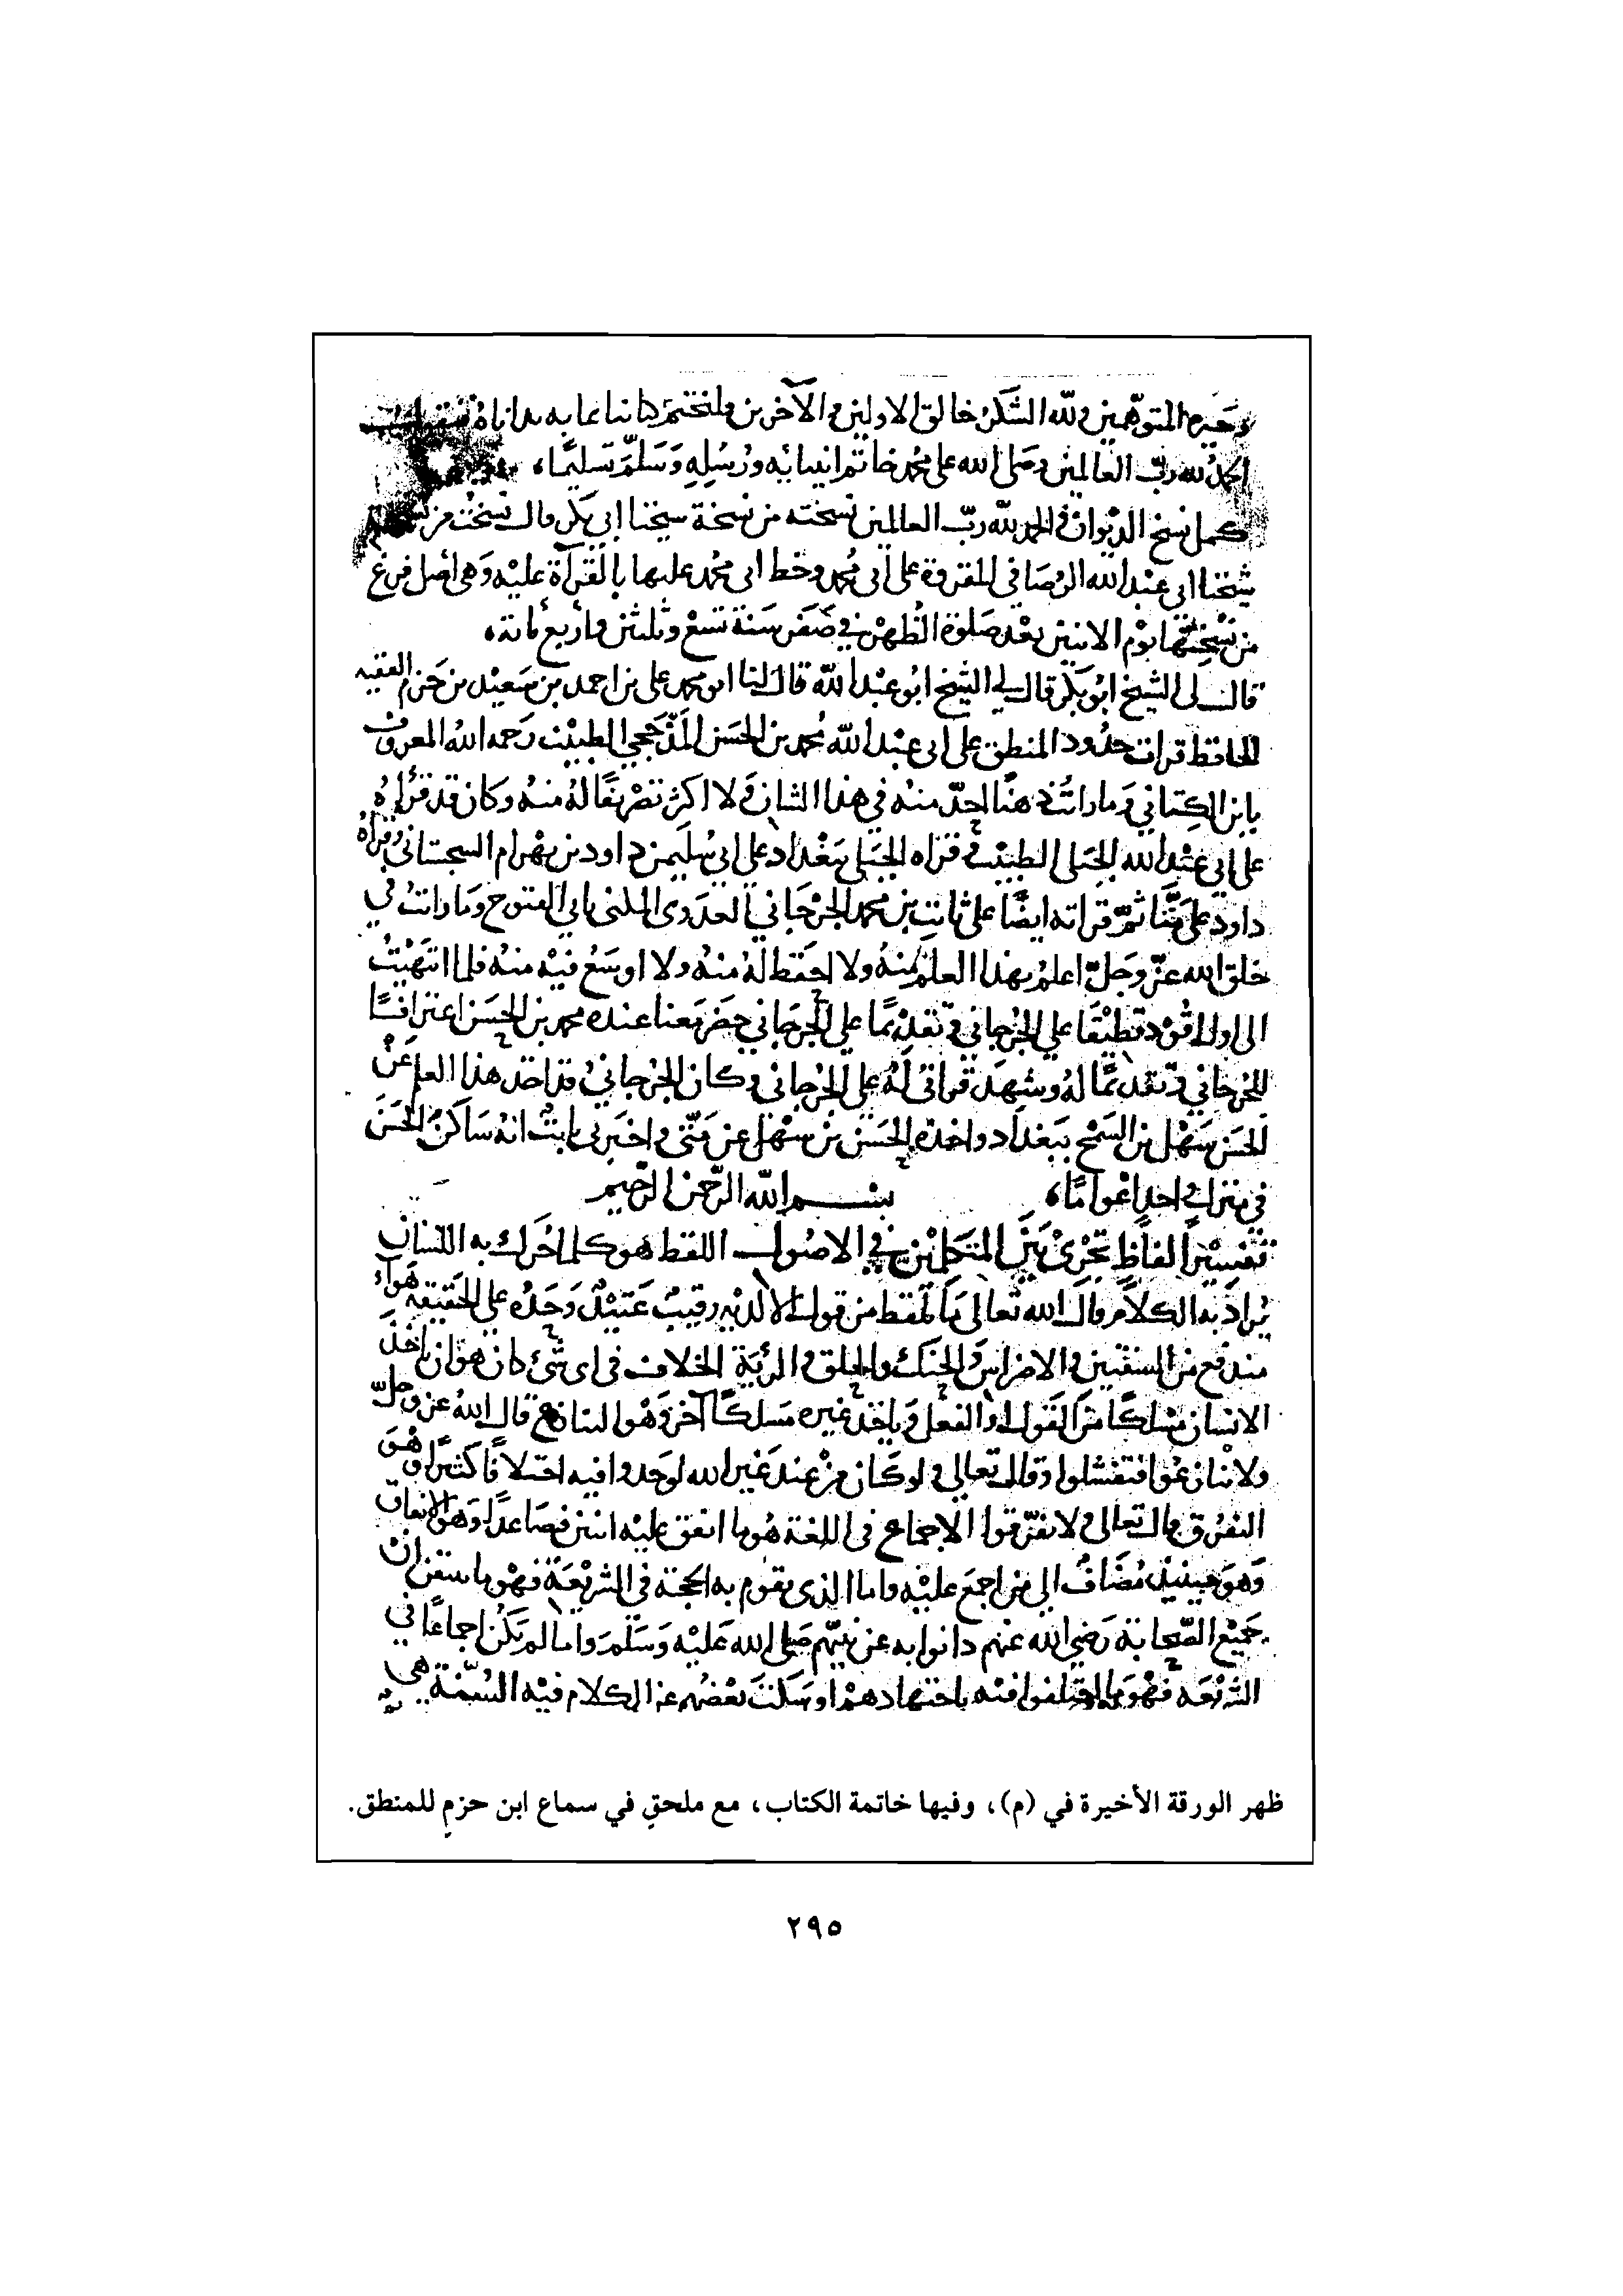 وحيرة المتوهمين ولله الشكر خالق الاولين والآخرين ولنختم كتابنا بما به بداناه فنقول
الحمد لله رب العالمين وصلى الله على محمد خاتم انبيائه ورُسُلِهِ وَسَلَّمَ تسليمًا،
كمل نسخ الديوان والحمد لله ربّ العالمين نسخته من نسخة شيخنا ابي بكر قال نسخت من
شيخنا ابي عبد الله الرصافي المقروة على أبي محمد وخط ابي محمد عليها بالقرآة عليه وهي أصل فرغ
من نسخها يوم الاثنين بعد صلوة الظهر في صفر سنة تسع وثلثين وأربع مائة،
قال لي الشيخ ابو بكر قال لي الشيخ ابو عبد الله قال لنا ابو محمد علي بن احمد بن سعيد بن حزم الفقيه
الحافظ قرات حدود المنطق على ابي عبد الله محمد بن الحسن المذحجي الطبيب رحمه الله المعروف
بابن الكتاني وما رأيت ذهنًا احدّ منه في هذا الشان ولا اكثر تصرفًا لهُ منهُ وكان قد قرأهُ
على ابي عبد الله الجبلي الطبيب وقراه الجبلي ببغداد على ابي سليمن داود بن بهرام السجستاني وقراهُ
داود على متّا ثمّ قراته ايضًا على ثابت بن محمد الجرجاني العدوي المكنى بابي الفتوح وما رايت في
خلق الله عزّ وجلّ اعلمُ بهذا العلم منهُ ولا احفظ لهُ منهُ ولا اوسع فيه منهُ فلما انتهيت
الى اولاقود تطيقا على الجرجاني وتقدمًا على الجرجاني حضر معنا عنده محمد بن الحسن اعترافًا
للجرجاني وتقدمًا لهُ وشهد قراتي لَهُ على الجرجاني وكان الجرجانيُ قد اخذ هذا العلم عن
الحسن بن سهل بن السمح ببغداد واخذه الحسن بن سهل عن متّى واخبرني ثابت انهُ ساكن الحسن
في منزل واحد اعوامًا، بسم الله الرحمن الرحيم
تفسير الفاظ تجري بين المتكلمين في الاصول اللفظ هو كلما حُرك به اللسان
يُراد به الكلام قال الله تعالى ما يلفظ من قول الا لديه رقيبٌ عتيدٌ وحدُه على الحقيقة هواءُ
مندفع من الشفتين والاضراس والحنك والحلق والرئة الخلاف في اي شئ كان هو ان ياخذ
الانسان مسلكًا من القول او الفعل وياخذ غيره مسلكًا آخر وهو التنازع قال الله عز وجل
ولا تنازعوا فتفشلوا وقال تعالى ولو كان من عند غير الله لوجدوا فيه اختلافًا كثيرًا وهو
التفرق قال تعالى ولا تفرّقوا الاجماع في اللغة هُو ما اتفق عليه اثنين فصاعدًا وهو الاتفاق
وهو حينيذٍ مُضاف الى من اجمع عليه واما الذي يقوم به الحجة في الشريعة فهو ما تيقن ان
جميع الصّحابة رضي الله عنهم دانوا به عن نبيّهم صلى الله عليه وسلم واما لم يكن اجماعًا في
الشريعه فهو ما اختلفوا فيه باجتهادهم او سكت بعضُهم عن الكلام فيه السُنّة هي
ظهر الورقة الأخيرة في (م)، وفيها خاتمة الكتاب، مع ملحقٍ في سماع ابن حزمٍ للمنطق.
٢٩٥